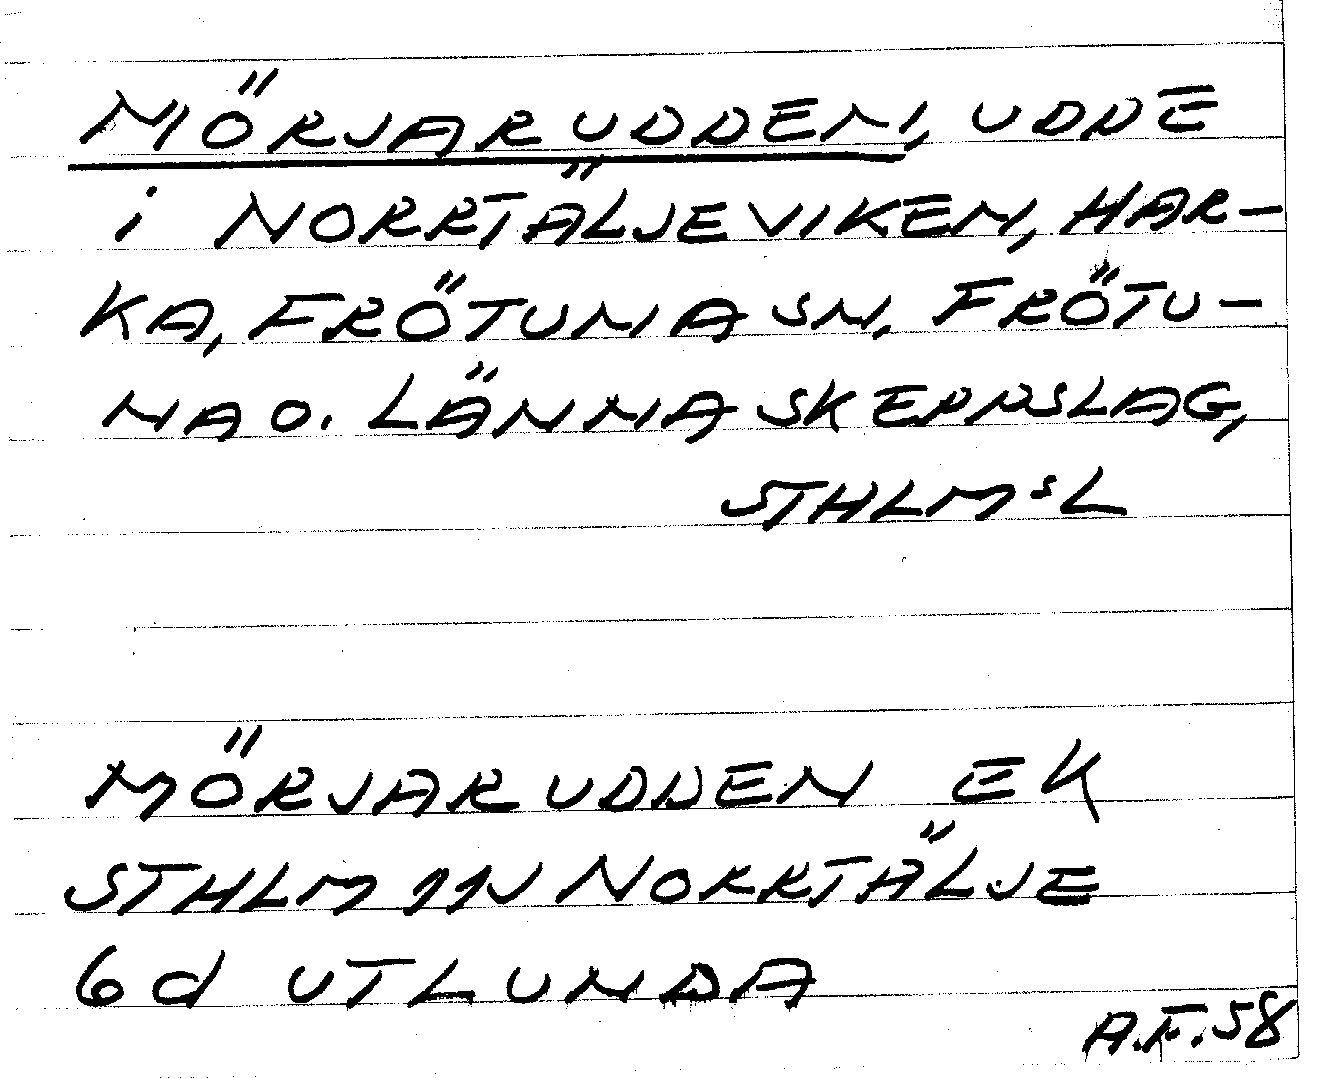 MÖRJARUDDEN, UDDE
i NORRTÄLJEVIKEN, HAR-
KA, FRÖTUNA SN, FRÖTU-
NA O. LÄNNA SKEPPSLAG,
STHLMsL
MÖRJARUDDEN EK
STHLM 11N NORRTÄLJE
6d UTLUNDA
A.F. 58